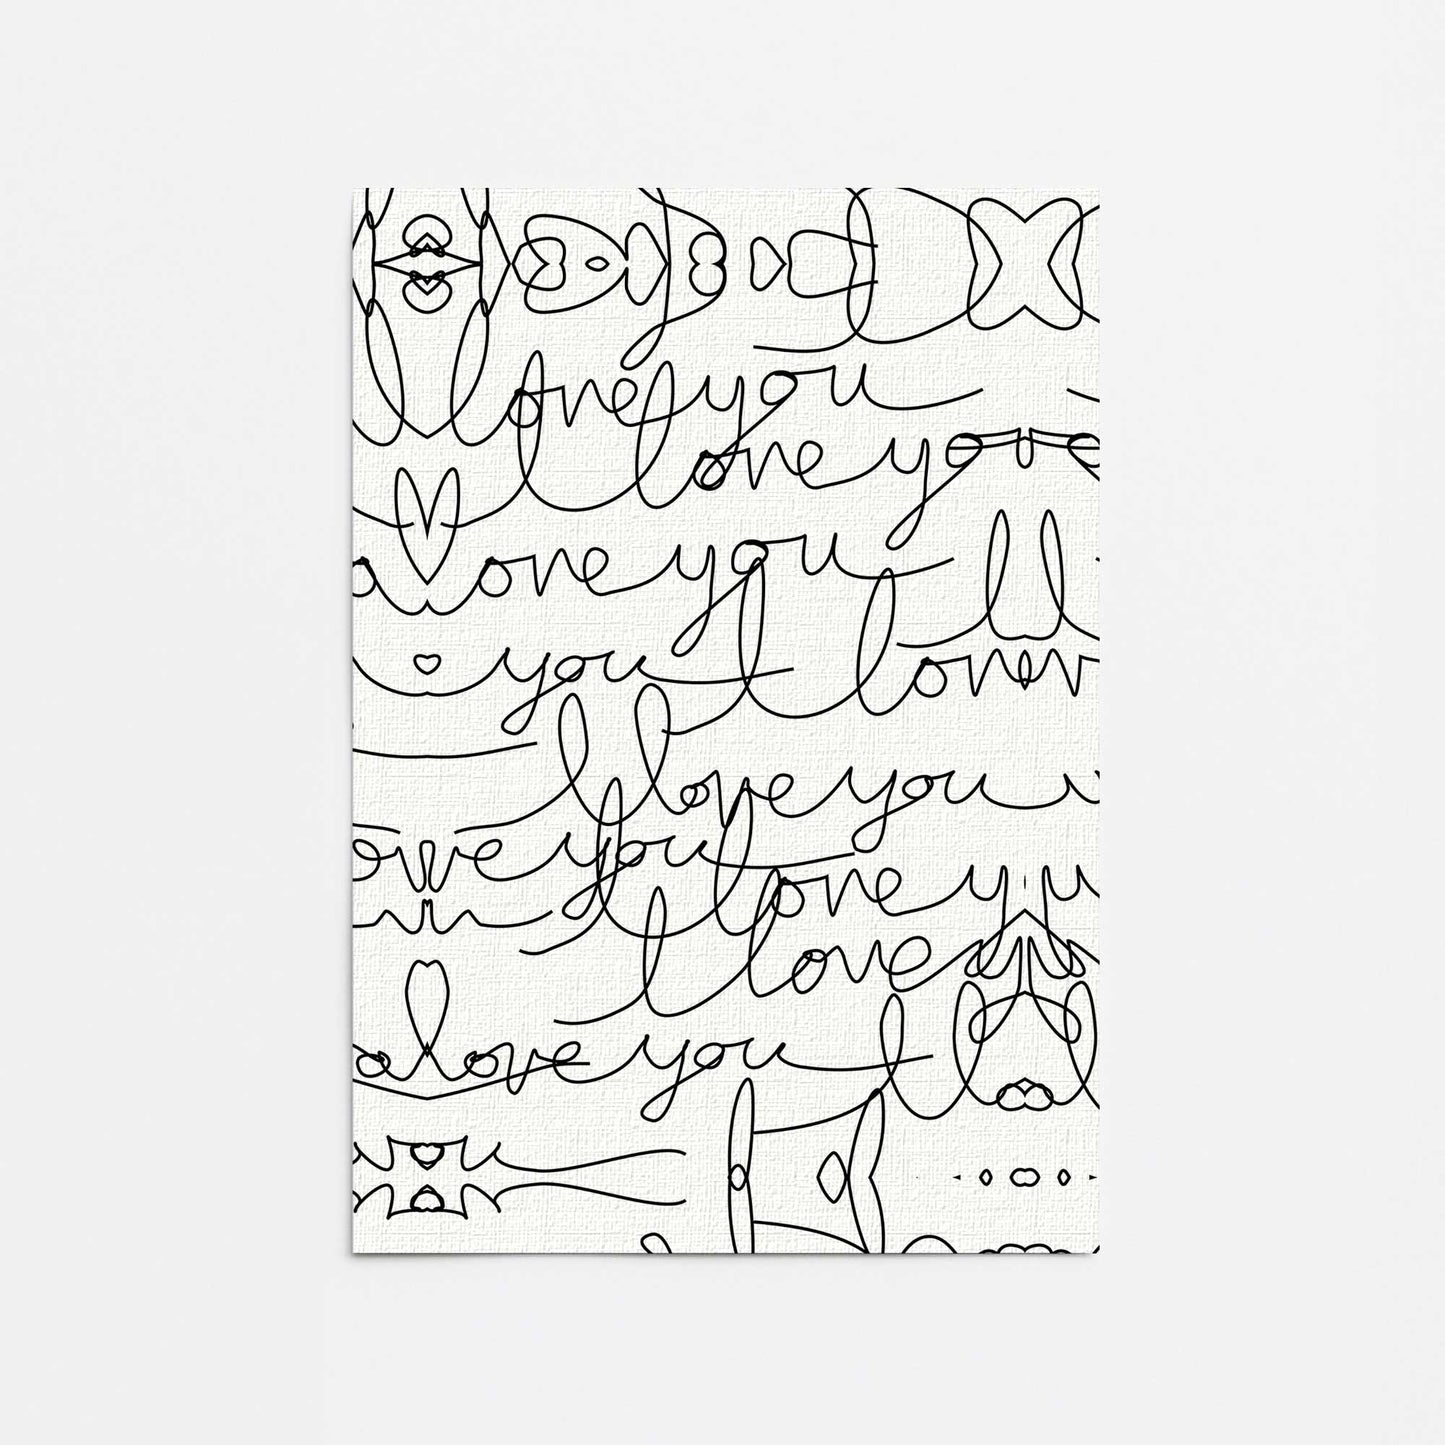 love you
l love yo
love you
you l lov
l love you
ove you
l love yu
l love
love you l